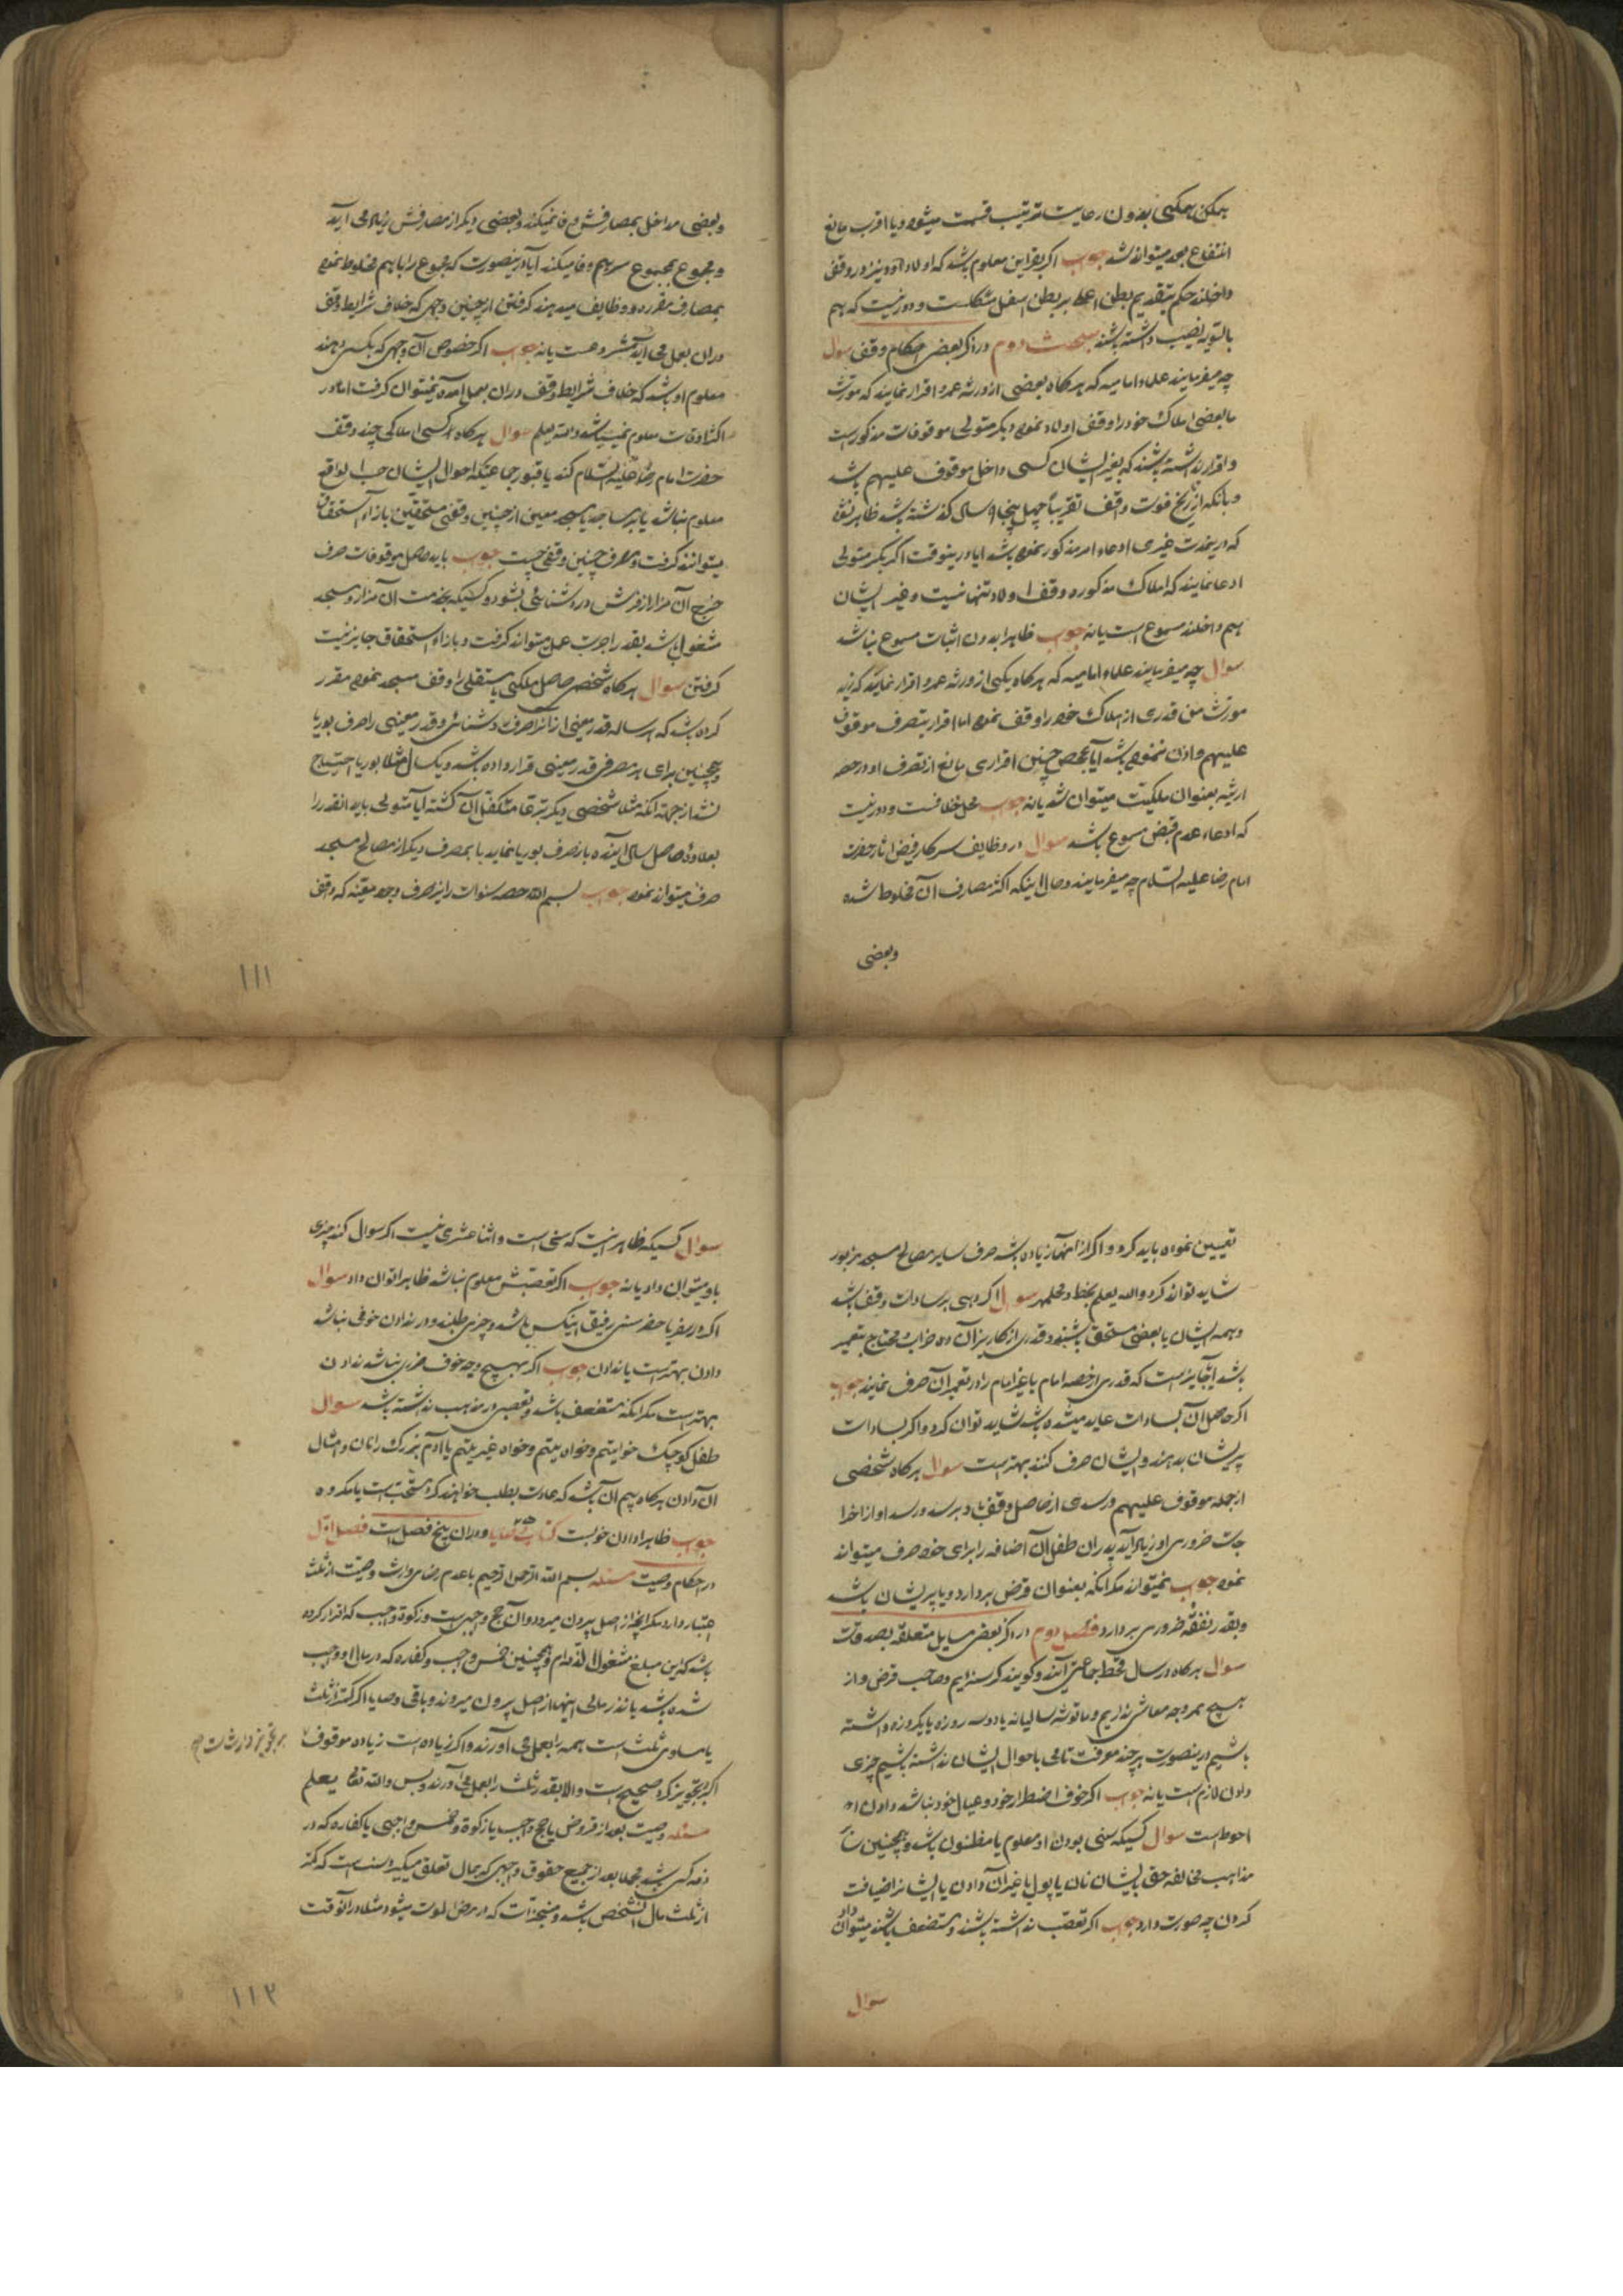 همکن بهمکی بدون رعایت ترتیب قسمت میشود و یا اقرب مانع
انتفاع بعد میتواند شد جواب اگر بقراین معلوم باشد که اولاد او نیز در وقف
داخلند حکم بتقدیم بطن اعلی بر بطن اسفل مشکلست و دور نیست که بهم
بالسویه نصیب داشته باشند مبحث دوم در ذکر بعضی احکام وقف سوال
چه میفرمایند علماء امامیه که هر کاه بعضی از ورثه عمرو اقرار نمایند که مورث
ما بعضی املاک خود را وقف اولاد نموده و دیگر متولی موقوفات مذکور است
و اقرار نداشته باشند که بغیر ایشان کسی داخل موقوف علیهم باشد
و بانکه از تاریخ فوت واقف تقریباً چهل پنجاه سال گذشته باشد ظاهر نشد
که در یمدت غیری ادعاء امر مذکور نموده باشد ایا در ینوقت اگر بکر متولی
ادعا نمایند که املاک مذکوره وقف اولاد تنها نیست و غیر ایشان
هم داخلند مسموع است یا نه جواب ظاهرا بدون اثبات مسموع نباشد
سوال چه میفرمایند علماء امامیه که هر کاه یکی از ورثه عمرو اقرار نمایند که
مورث من قدری از املاک خود را وقف نموده اما اقرار بتصرف موقوف
علیهم و اذن ننموده باشد آیا بمحض چنین اقراری مانع از تصرف او در حصه
ارثیه بعنوان ملکیت میتوان شد یا نه جواب محل خلافست و دور نیست
که ادعاء عدم قبض مسموع باشد سوال در وظایف سرکار فیض اثار حضرت
امام رضا علیه السلام چه میفرمایند و حال اینکه اکثر مصارف آن مخلوط شده
وبعضی
وبعضی مداخل بمصارفش وفا نمیکند و بعضی دیگر از مصارفش زیاد می آید
و مجموع بمجموع سرهم وفا میکند آیا در ینصورت که مجموع را با هم مخلوط نموده
بمصارف مقرره و وظایف میدهند گرفتن از چنین وجهی که خلاف شرایط وقف
دران بعمل می اید مشروعست یا نه جواب اگر خصوص آن وجهی که بکسی دهند
معلوم او باشد که خلاف شرایط وقف دران بعمل امده نمیتوان گرفت اما در
اکثر اوقات معلوم نمیباشد والله یعلم سوال هر کاه کسی املاکی چند وقف
حضرت امام رضا علیه السلام کند یا قبور جماعتیکه احوال ایشان حسب الواقع
معلوم نباشد یا بر مساجد یا مسجد معین از چنین وقفی مستحقین بازاء استحقاق
میتوانند گرفت و مصرف چنین وقفی چیست جواب باید حاصل موقوفات صرف
خرج آن مزار از فرش و روشنائی بشود و کسیکه بخدمت آن مزار و مسجد
مشغول باشد بقدر اجرت عمل میتواند گرفت و بازاء استحقاق جایز نیست
گرفتن سوال هر کاه شخصی حاصل ملکی یا مستقلی را وقف مسجد نموده مقرر
کرده باشد که هر ساله قدر معینی از انرا صرف روشنائی و قدر معینی را صرف بوریا
و همچنین برای هر مصرفی قدر معینی قرار داده باشد و یکسال مثلا بوریا احتیاج
نشد از جهة آنکه مثلا شخصی دیگر تبرعا متکفل آن گشته آیا متولی باید انقدر را
بعلاوه حاصل سال اینده باز صرف بوریا نماید یا بمصرف دیگر از مصالح مسجد
صرف میتواند نمود جواب بسم الله حصه سنوات را نیز صرف وجوه معینه که واقف
۱۱۱
تعیین نموده باید کرد و اگر از انها زیاده باشد صرف سایر مصالح مسجد مزبور
شاید تواند کرد والله یعلم بخط دخلمهر سوال اگر دهی بر سادات وقف باشد
و همه ایشان یا بعضی مستحق باشند و قدری از کاریز آن ده خراب و محتاج بتعمیر
باشد ایا جایز است که قدری از حصه امام یا غیر امام را در تعمیر آن صرف نمایند جواب
اگر حاصل آن بسادات عاید میشده باشد شاید توان کرد و اگر بسادات
پریشان بدهند و ایشان صرف کنند بهتر است سوال هر کاه شخصی
از جمله موقوف علیهم و رسدی از حاصل وقف باو برسد و رسد او از اخرا
جات ضروری او زیاد آید پدران طفل آن اضافه را برای خود صرف میتواند
نمود جواب نمیتواند مگر انکه بعنوان قرض بردارد و یا پریشان باشد
و بقدر نفقه ضروری بردارد فصل دوم در ذکر بعض مسایل متعلقه بصدقات
سوال هر کاه در سال قحط جماعتی آیند و گویند گرسنه ایم و صاحب قرض و از
هیچ ممر وجه معاشی نداریم و ما قوت سالیانه یا دو سه روزه یا یکروزه داشته
باشیم درینصورت هر چند معرفت تامی باحوال ایشان نداشته باشیم چیزی
دادن لازم است یا نه جواب اگر خوف اضطرار خود و عیال خود نباشد دادن
احوط است سوال کسیکه سنی بودن او معلوم یا مظنون باشد و همچنین سایر
مذاهب مخالفه حق بایشان نان یا پول یا غیر آن دادن یا ایشانرا ضیافت
کردن چه صورت دارد جواب اگر تعصب نداشته باشند و مستضعف باشند میتوان داد
سوال
سوال کسیکه ظاهر اینست که سنی است و اثنا عشری نیست اگر سوال کند چیزی
باو میتوان داد یا نه جواب اگر تعصبش معلوم نباشد ظاهرا توان داد سوال
اگر در سفر یا حضر سنی رفیق اینکس باشد و چیزی طلبد و در ندادن خوفی نباشد
دادن بهتر است یا ندادن جواب اگر بهیچ وجه خوف ضرری نباشد ندادن
بهتر است مگر انکه مستضعف باشد و تعصبی در مذهب نداشته باشد سوال
طفل کوچک خواه یتیم و خواه غیر یتیم یا آدم بزرگ را نان و امثال
آن دادن هر کاه بیم آن باشد که عادت بطلب خواهند کرد مستحب است یا مکروه
جواب ظاهرا دادن خوبست کتاب وصایا و دران پنج فصل است فصل اول
در احکام وصیت مسئله بسم الله الرحمن الرحیم با عدم رضای وارث وصیت از ثلث
اعتبار دارد مگر انچه از اصل بیرون میرود و ان حج واجبی است و زکوة واجب که اقرار کرده
باشد که این مبلغ مشغول الذمه ام و همچنین خمس واجب و کفاره که در مال او واجب
شده باشد یا نذر مالی اینها از اصل بیرون میروند و باقی وصایا اگر کمتر از ثلث
یا مساوی ثلث است همه را بعمل می آورند و اگر زیاده است زیاده موقوف
اگر تجویز کرد صحیح است والا بقدر ثلث را بعمل می آورند و بس والله تعالی یعلم
مسئله وصیت بعد از قروض یا حج واجب یا زکوة و خمس واجبی یا کفاره که در
ذمه کسی باشد مجملا بعد از جمیع حقوق واجبی که بمال تعلق میگیرد سنت است که کمتر
از ثلث مال انشخص باشد و منجزات که در مرض الموت میشود مثلا در انوقت
۱۱۲